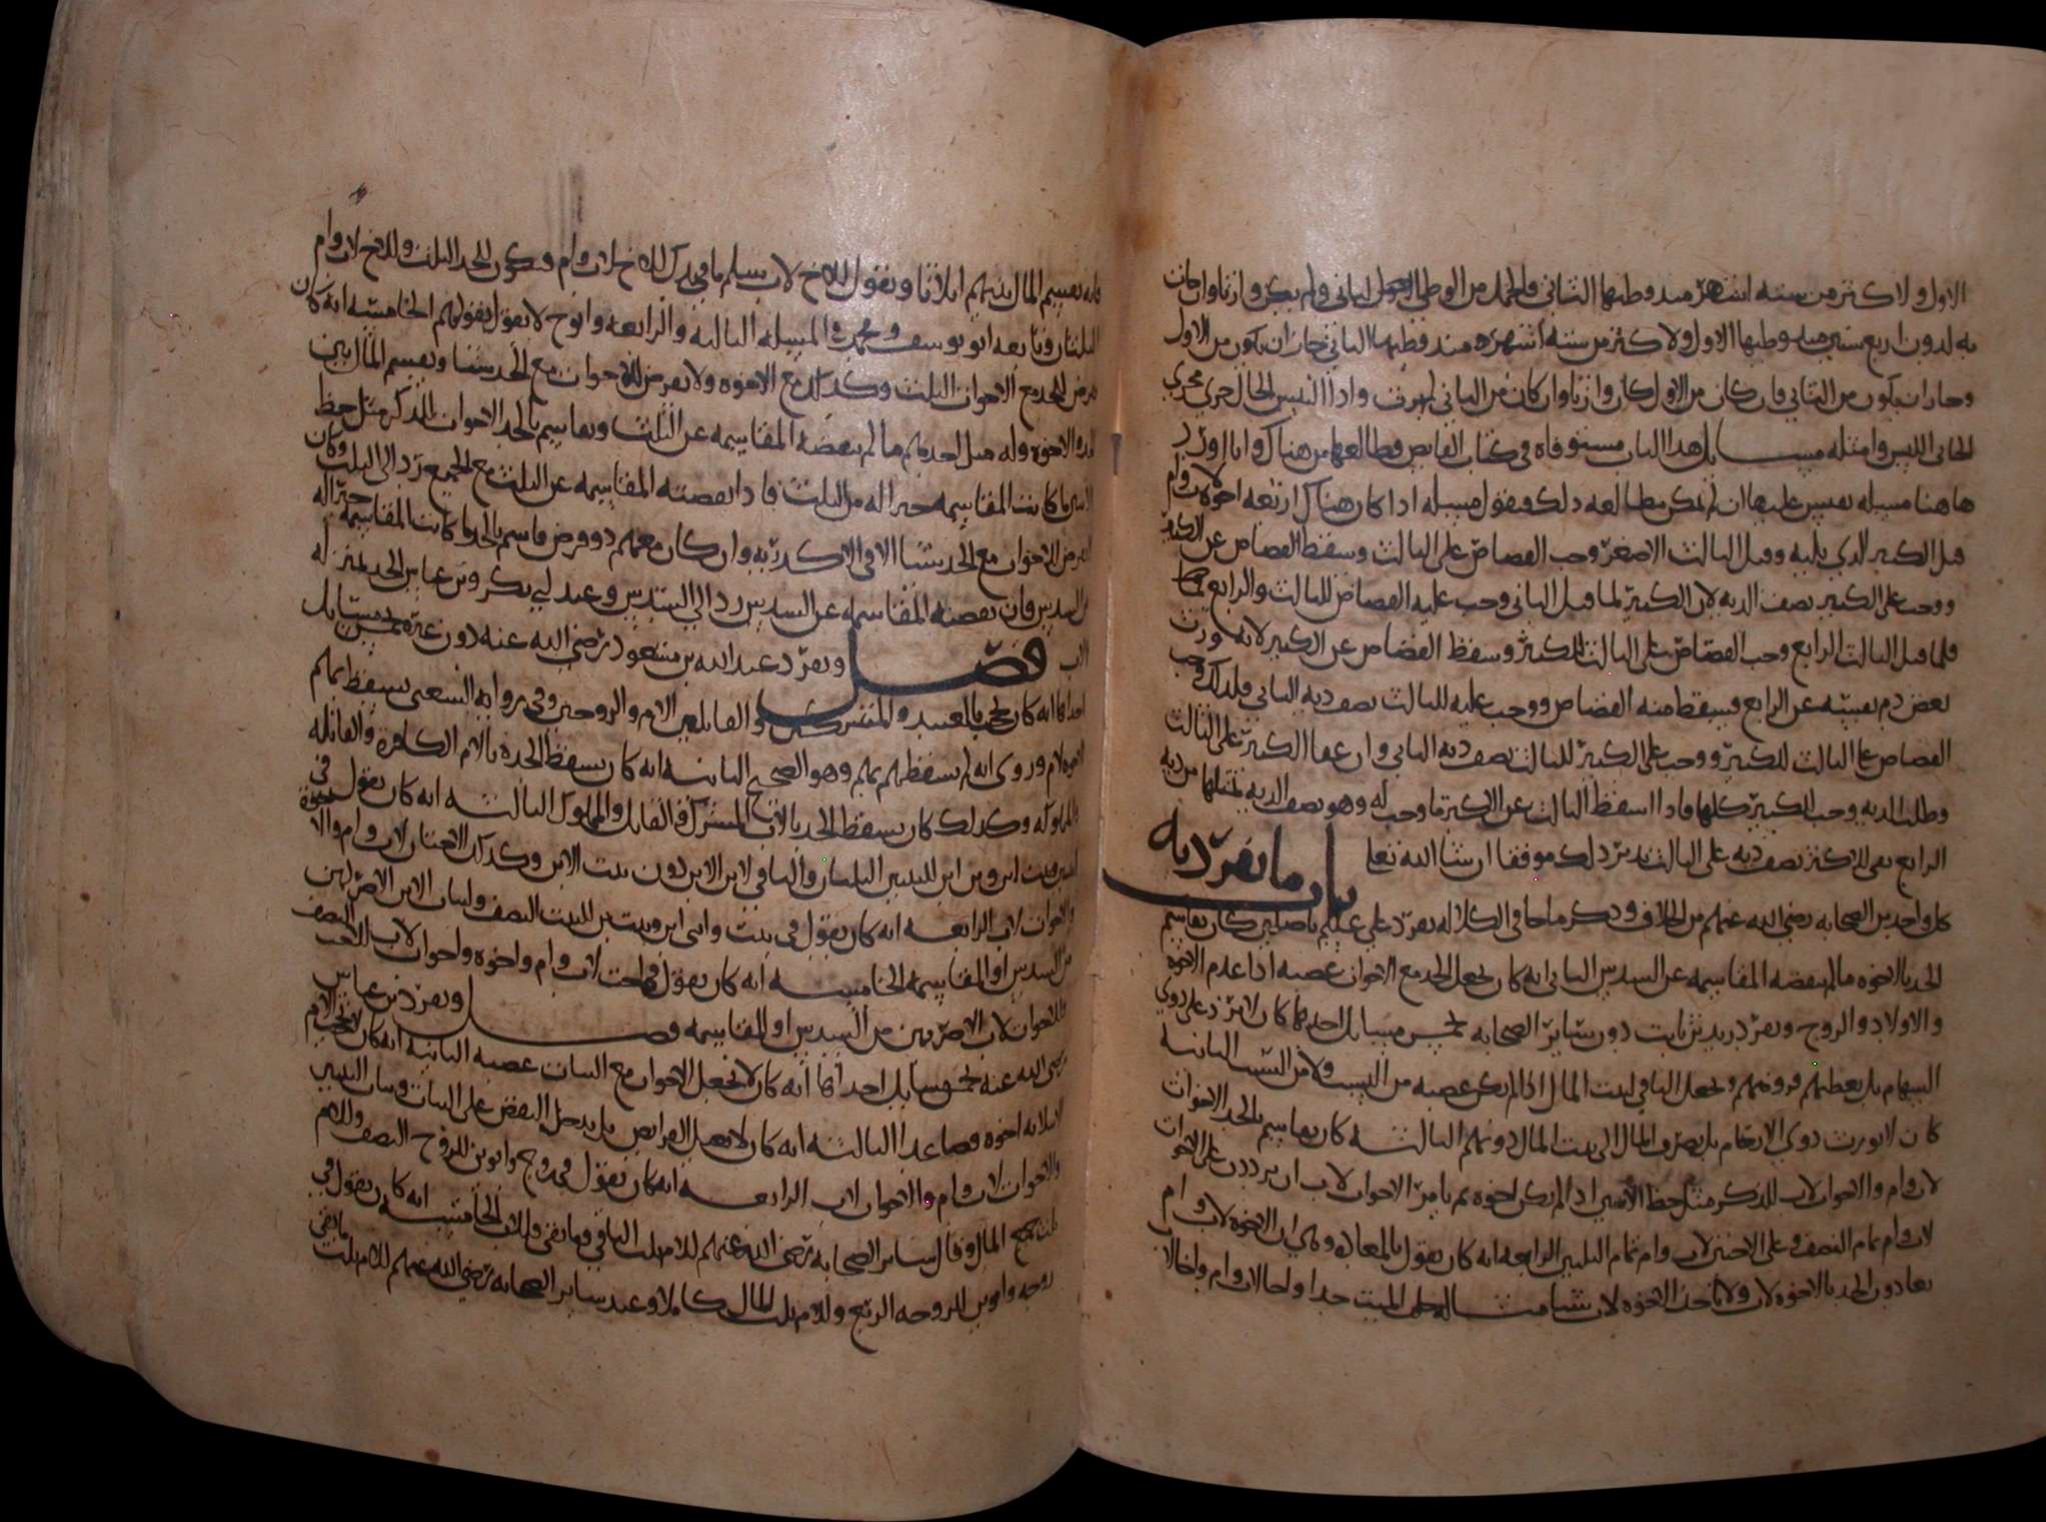 الاول ولا كثر من سته اشهر منذ وطيها الثاني والحمل من الوطي الاول لم يكن وارثا وان جات
به لدون اربع سنين منذ وطيها الاول ولا كثر من سته اشهر منذ وطيها الثاني جاز ان يكون من الاول
وجاز ان يكون من الثاني فان كان من الاول كان وارثا وان كان من الثاني لم يرث واذا التبس الحال جرى مجرى
الخاثى اللبس وامثله مسايل هذا الباب مستوفاه في كتاب الفايض فطالعها من هناك وانا اورد
هاهنا مسيله تقيس عليها ان لم تمكن مطالعه ذلك فنقول مسيله اذا كان هناك اربعه اخوه لاب وام
قتل الكبير الذي يليه وقتل الثالث الاصغر وجب القصاص على الثالث وسقط القصاص عن الكبير
ووجب على الكبير نصف الديه لان الكبير لما قتل الثاني وجب عليه القصاص للثالث والرابع
فلما قتل الثالث الرابع وجب القصاص على الثالث للكبير وسقط القصاص عن الكبير لانه ورث
بعض دم نفسه عن الرابع فسقط منه القصاص ووجب عليه للثالث نصف ديه الثاني فلذلك وجب
القصاص على الثالث للكبير ووجب على الكبير للثالث نصف ديه الثاني وان عفا الكبير على الثالث
وطلب الديه وجب للكبير كلها فاذا اسقط الثالث عن الاكبر ما وجب له وهو نصف الديه بمثلها من ديه
الرابع بقى للاكبر نصف ديه على الثالث تدبر ذلك موفقا ان شا الله تعا
باب ما تفرد به
كل واحد من الصحابه رضي الله عنهم من الخلاف وذكر ما جا في الكلاله تفرد علي عليلم باصلين كان يقاسم
الجد بالاخوه ما لم تنقصه المقاسمه عن السدس الثاني انه كان يجعل الجد مع الاخوات عصبه اذا عدم الاخوه
والاولاد والزوج وتفرد زيد بن ثابت دون ساير الصحابه بخمس مسايل احدها كان لا يرد على ذوي
السهام بل يعطيهم فروضهم ويجعل الباقي لبيت المال اذا لم يكن عصبه من النسب ولا من السبب الثانيه
كان لا يورث ذوي الارحام بل يصرف المال الى بيت المال دونهم الثالثه كان يقاسم بالجد الاخوات
لاب وام والاخوات لاب للذكر مثل حظ الانثيين اذا لم يكن اخوه ثم يامر الاخوات لاب ان يرددن على الاخوات
لاب وام تمام النصف وعلى الاختين لاب وام تمام الثلثين الرابعه انه كان يقول بالمعاده وهي ان الاخوه لاب وام
يعادون الجد بالاخوه لاب ولا ياخذ الاخوه لاب شيا مثاله خلف الميت جدا واخا لاب وام واخا لاب
فانه يقسم المال بينهم اثلاثا ويقول للاخ لاب سلم ما في يدك للاخ لاب وام فيكون للجد الثلث وللاخ لاب وام
الثلثان وتابعه ابو يوسف ومحمد في المسيله الثالثه والرابعه وابو ح لا يقول بقولهم الخامسه انه كان
يفرض للجد مع الاخوات الثلث وكذلك مع الاخوه ولا يفرض للاخوات مع الجد شيا ويقسم المال بين
الجد والاخوه وله مثل احدهم ما لم تنقصه المقاسمه عن الثلث ويقاسم بالجد الاخوات للذكر مثل حظ
الانثيين ما كانت المقاسمه خيرا له من الثلث فاذا نقصته المقاسمه عن الثلث مع الجميع رد الى الثلث وكان
لا يفرض للاخوات مع الجد شيا الا في الاكدريه وان كان معهم ذو فرض قاسم بالجد ما كانت المقاسمه خيرا له
من السدس فان نقصته المقاسمه عن السدس رد الى السدس وعند ابي بكر وبن عباس الجد بمنزله
الاب فصل وتفرد عبد الله بن مسعود رضي الله عنه دون غيره بخمس مسايل
احداها انه كان يحجب بالعبيد والمشركين والقاتلين الام والزوجين وفي روايه الشعبي يسقط بهم
الاخوه لام وروي انه لم يسقطهم بهم وهو الصحيح الثانيه انه كان يسقط الجده بالام الكافره والقاتله
والمملوكه وكذلك كان يسقط الجد بالاب المشرك والقاتل والمملوك الثالثه انه كان يقول في
ابنتين وبنت ابن وبن ابن للبنتين الثلثان والباقي لابن الابن دون بنت الابن وكذلك الاختان لاب وام والاخوه
والاخوات لاب الرابعه انه كان يقول في بنت وابن ابن وبنت ابن للبنت النصف ولبنات الابن الاضر بهن
من السدس او المقاسمه الخامسه انه كان يقول في اخت لاب وام واخوه واخوات لاب للاخت النصف
وللاخوات لاب الاضر بهن من السدس او المقاسمه فصل وتفرد بن عباس
رضي الله عنه بخمس مسايل احداها انه كان لا يجعل الاخوات مع البنات عصبه الثانيه انه كان لا يحجب الام
الا بثلاثه اخوه فصاعدا الثالثه انه كان لا يعيل الفرايض بل يدخل النقص على البنات وبنات البنين
والاخوات لاب وام والاخوات لاب الرابعه انه كان يقول في زوج وابوين للزوج النصف وللام
ثلث جميع المال وقال ساير الصحابه رضي الله عنهم للام ثلث الباقي وما بقي فللاب الخامسه انه كان يقول في
زوجه وابوين للزوجه الربع وللام ثلث المال كاملا وعند ساير الصحابه رضي الله عنهم للام ثلث ما بقي